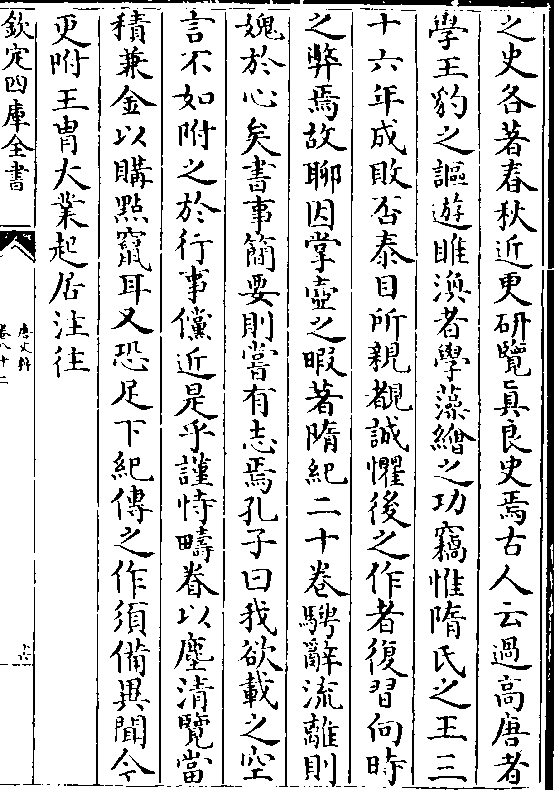 之史各著春秋近更研覽真良史焉古人云過高唐者
學王豹之謳遊睢渙者學藻繪之功竊惟隋氏之王三
十六年成敗否泰目所親覩誠懼後之作者復習向時
之弊焉故聊因掌壺之暇著隋紀二十卷騁辭流離則
媿於心矣書事簡要則嘗有志焉孔子曰我欲載之空
言不如附之於行事儻近是乎謹恃疇眷以塵清覽當
積兼金以購點竄耳又恐足下紀傳之作須備異聞今
更附王胄大業起居注往
欽定四庫全書
唐文粹
卷八十二